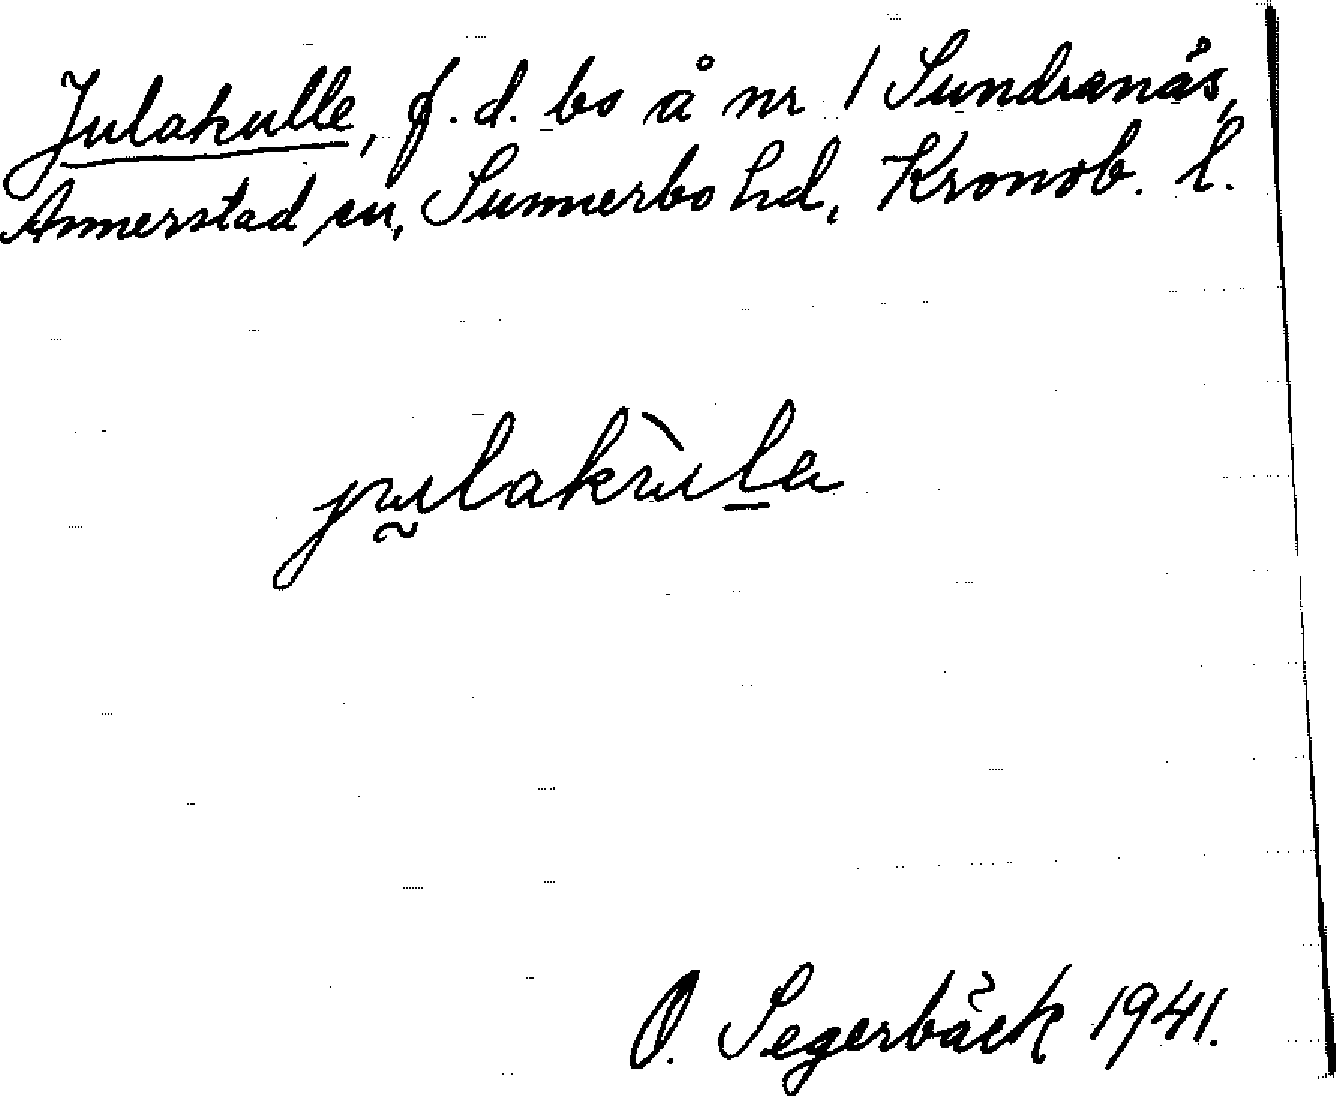 Julakulle, f.d. bo å nr 1 Sundranäs,
Annerstad sn, Sunnerbo hd, Kronob. l.
julakùla
O. Segerbäck 1941.